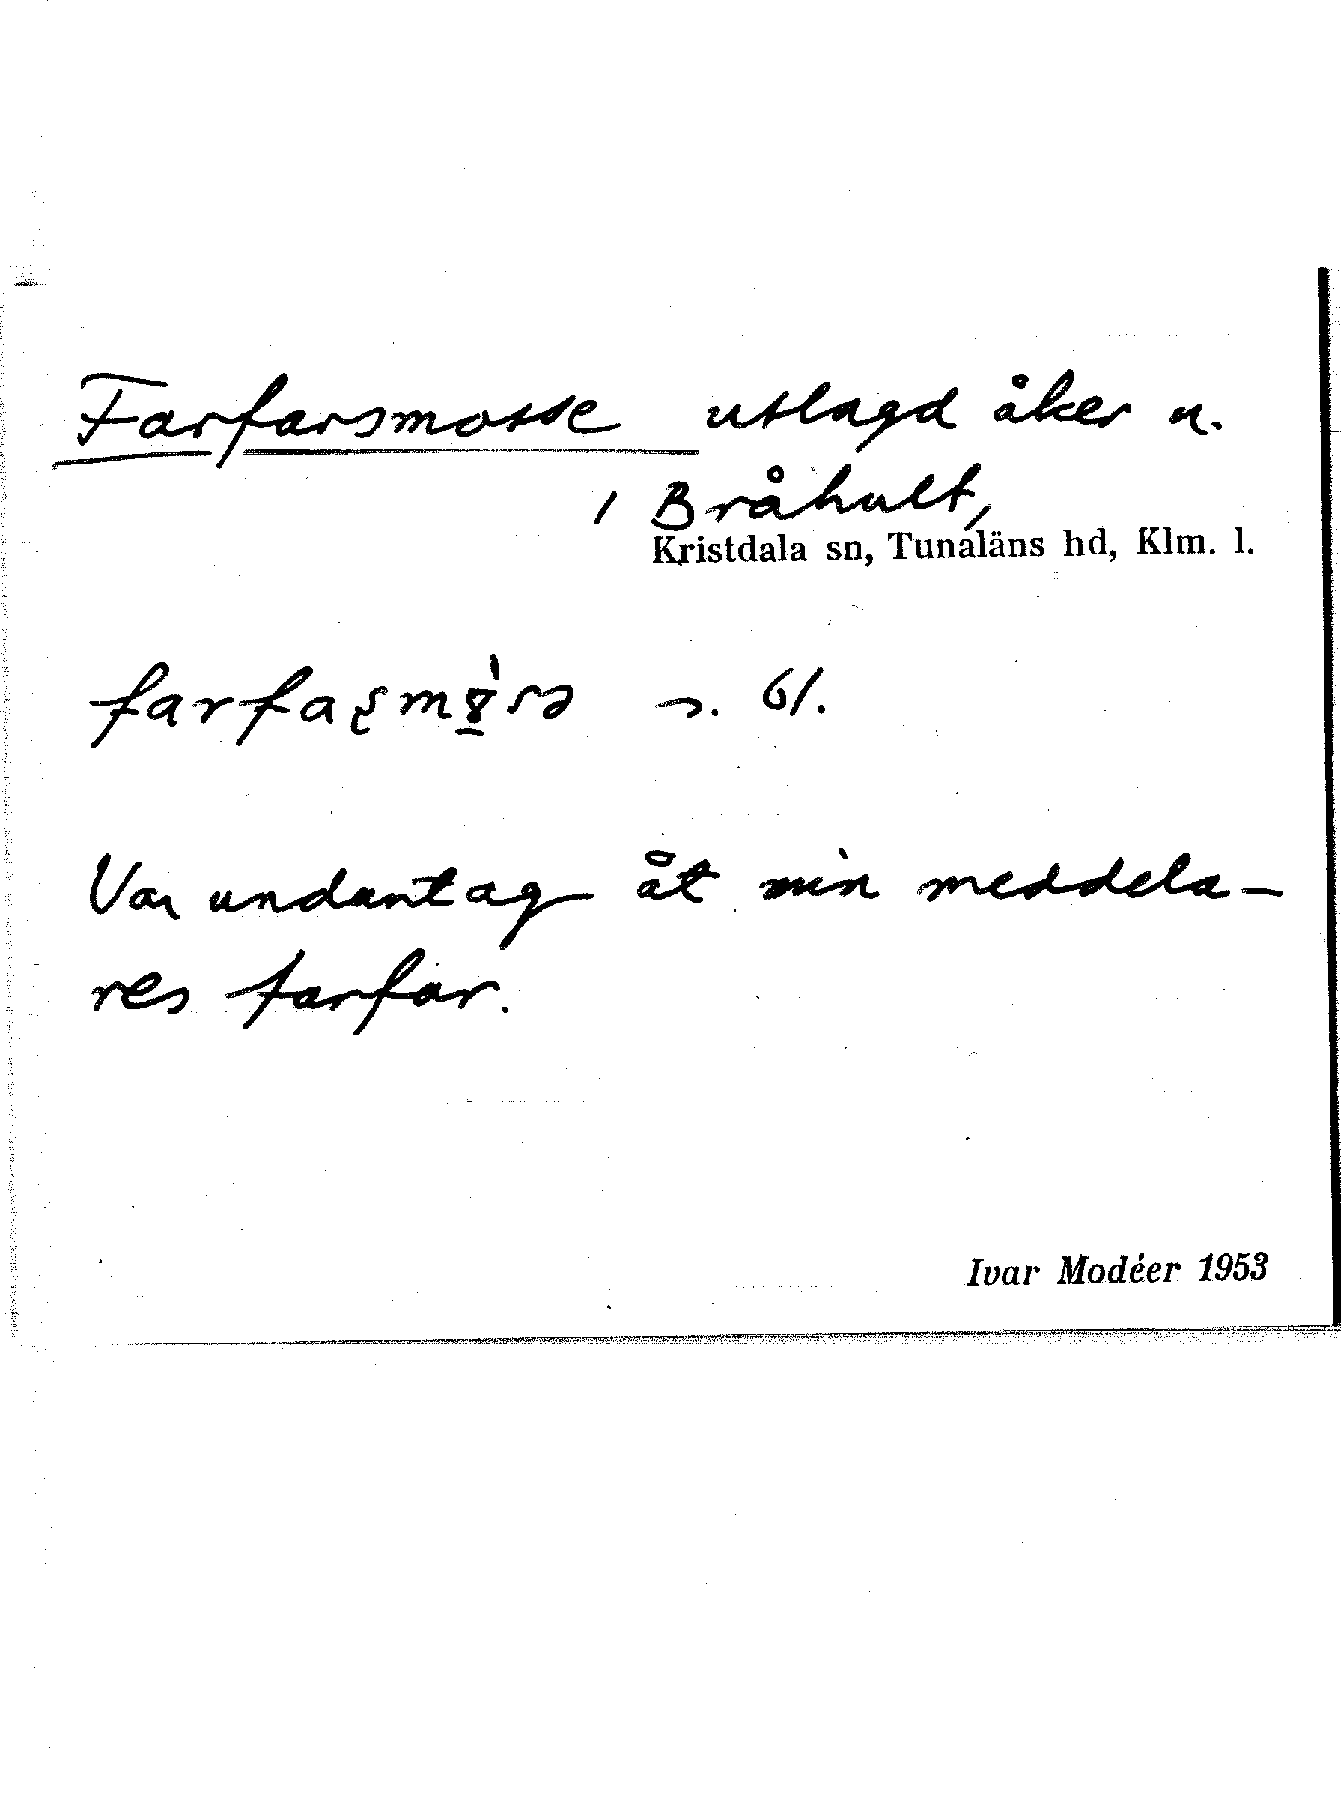 Farfarsmosse utlagd åker n.
1 Bråhult,
Kristdala sn, Tunaläns hd, Klm. l.
s. 61.
Var undantag åt min meddela-
res farfar.
Ivar Modéer 1953